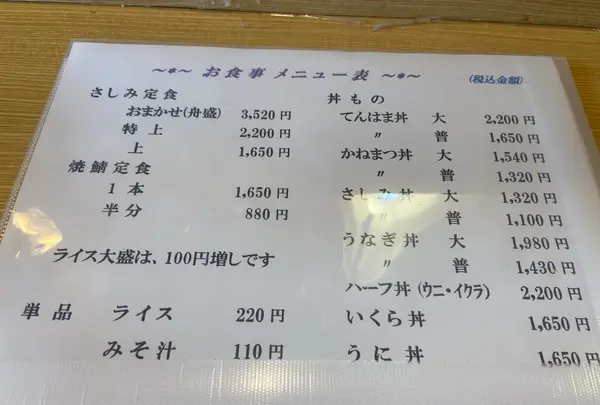 ～*～ お食事 メニュー表 ～*～
(税込金額)
さしみ定食
おまかせ(舟盛) 3,520 円
特上 2,200 円
上 1,650 円
焼鯖定食
1 本 1,650 円
半分 880 円
ライス大盛は、100円増しです
単品 ライス 220 円
みそ汁 110 円
丼もの
てんはま丼 大 2,200 円
〃 普 1,650 円
かねまつ丼 大 1,540 円
〃 普 1,320 円
さしみ丼 大 1,320 円
〃 普 1,100 円
うなぎ丼 大 1,980 円
〃 普 1,430 円
ハーフ丼 (ウニ・イクラ) 2,200 円
いくら丼 1,650 円
うに丼 1,650 円